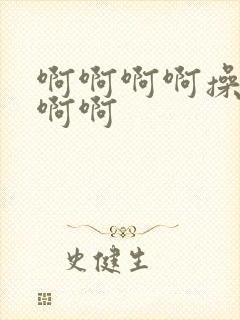 啊啊啊啊操
啊啊
史健生